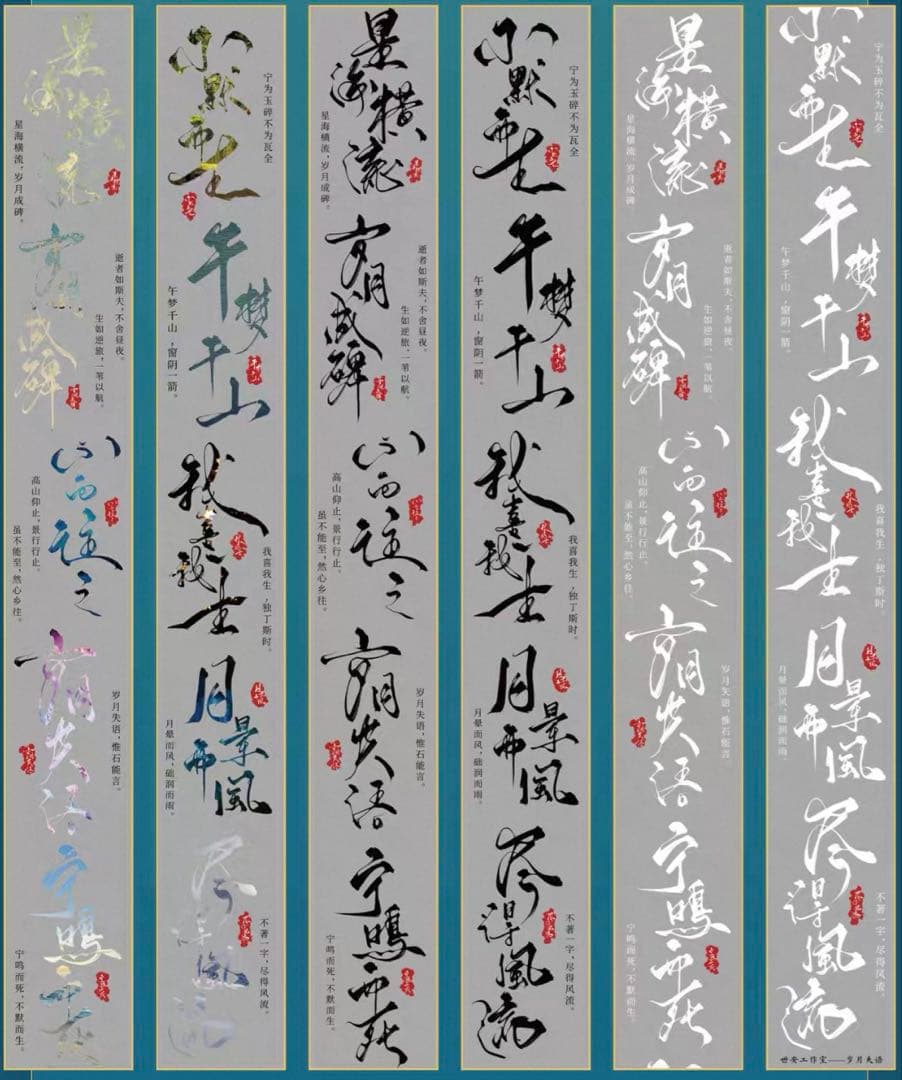 星海横流
星海横流，岁月成碑。
岁月成碑
逝者如斯夫，不舍昼夜。
生如逆旅，一苇以航。
心向往之
高山仰止，景行行止。
虽不能至，然心乡往。
岁月失语
岁月失语，惟石能言。
宁鳴而死
宁鸣而死，不默而生。
不默而生
宁为玉碎不为瓦全
午梦千山
午梦千山，窗阴一箭。
我喜我生
我喜我生，独丁斯时。
月晕而風
月晕而风，础润而雨。
尽得風流
不著一字，尽得风流。
星海横流
星海横流，岁月成碑。
岁月成碑
逝者如斯夫，不舍昼夜。
生如逆旅，一苇以航。
心向往之
高山仰止，景行行止。
虽不能至，然心乡往。
岁月失语
岁月失语，惟石能言。
宁鳴而死
宁鸣而死，不默而生。
不默而生
宁为玉碎不为瓦全
午梦千山
午梦千山，窗阴一箭。
我喜我生
我喜我生，独丁斯时。
月晕而風
月晕而风，础润而雨。
尽得風流
不著一字，尽得风流。
星海横流
星海横流，岁月成碑
岁月成碑
逝者如斯夫，不舍昼夜、
生如逆旅，一苇以航。
心向往之
高山仰止，景行行止。
虽不能至，然心乡往。
岁月失语
岁月失语，惟石能言
宁鳴而死
宁鸣而死，不默而生。
不默而生
宁为玉碎不为瓦全
午梦千山
午梦千山，窗阴一箭。
我喜我生
我喜我生，独丁斯时
月晕而風
月晕而风，础润而雨。
尽得風流
不著一字，尽得风流
世安工作室——岁月失语